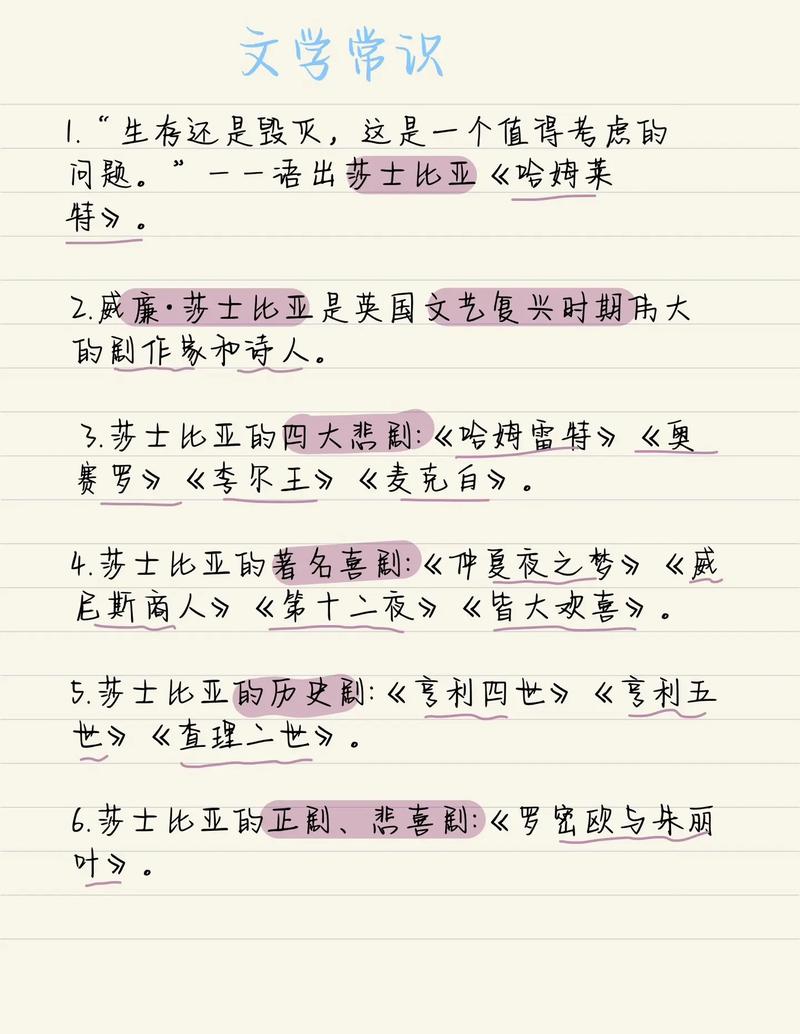 文学常识
1.“生存还是毁灭，这是一个值得考虑的
问题。”——语出莎士比亚《哈姆莱
特》。
2.威廉·莎士比亚是英国文艺复兴时期伟大
的剧作家和诗人。
3.莎士比亚的四大悲剧:《哈姆雷特》《奥
赛罗》《李尔王》《麦克白》。
4.莎士比亚的著名喜剧:《仲夏夜之梦》《威
尼斯商人》《第十二夜》《皆大欢喜》。
5.莎士比亚的历史剧:《亨利四世》《亨利五
世》《查理二世》。
6.莎士比亚的正剧、悲喜剧:《罗密欧与朱丽
叶》。